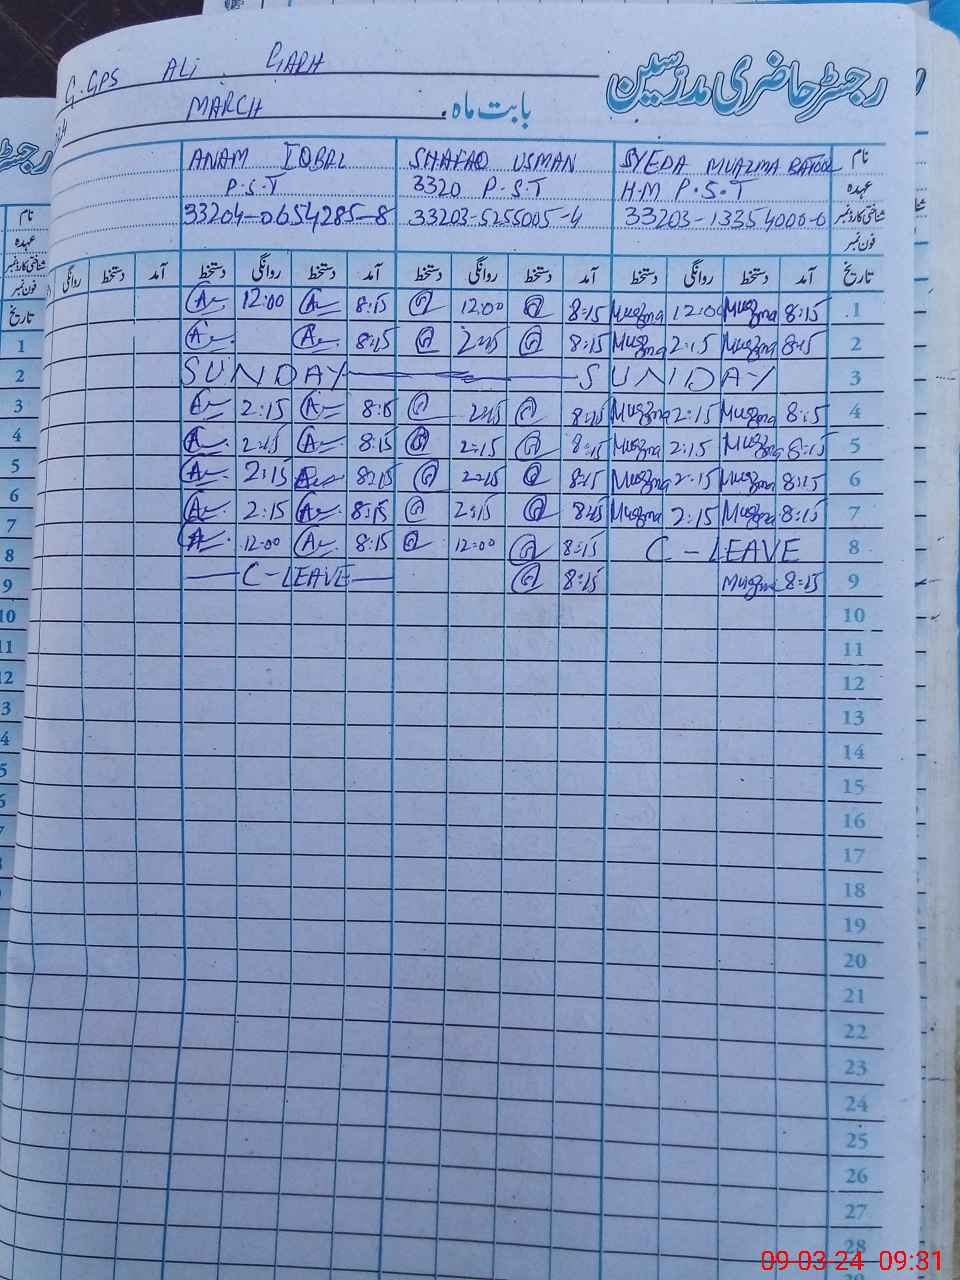 G.GPS ALi GARH رجسٹر حاضری مدرسین
MARCH بابت ماہ
نام SYEDA MUAZMA BATOOL SHAFAQ USMAN ANAM IQBAL
عہدہ H.M P.S.T 3320 P.S.T P.S.T
شناختی کارڈ نمبر 33203-13354000-0 33203-5255005-4 33204-0654285-8
فون نمبر
تاریخ آمد دستخط روانگی دستخط آمد دستخط روانگی دستخط آمد دستخط روانگی دستخط آمد دستخط روانگی
1 8:15 Muazma 12:00 Muazma 8:15 12:00 8:15 12:00
2 8:15 Muazma 2:15 Muazma 8:15 2:15 8:15
3 SUNDAY SUNDAY
4 8:15 Muazma 2:15 Muazma 8:15 2:15 8:15 2:15
5 8:15 Muazma 2:15 Muazma 8:15 2:15 8:15 2:15
6 8:15 Muazma 2:15 Muazma 8:15 2:15 8:15 2:15
7 8:15 Muazma 2:15 Muazma 8:15 2:15 8:15 2:15
8 C-LEAVE 8:15 12:00 8:15 12:00
9 8:15 Muazma 8:15 C-LEAVE
10
11
12
13
14
15
16
17
18
19
20
21
22
23
24
25
26
27
28
رجسٹر
نام
عہدہ
شناختی کارڈ نمبر
فون نمبر
تاریخ
1
2
3
4
5
6
7
8
9
10
11
12
09-03-24 09:31